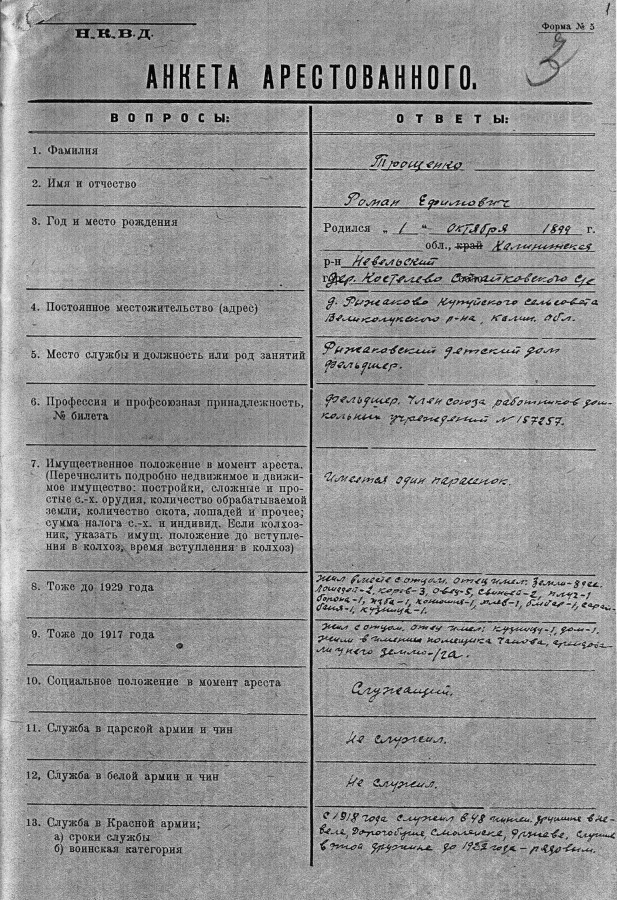 1
Н.К.В.Д.
Форма № 5
3
АНКЕТА АРЕСТОВАННОГО.
ВОПРОСЫ:
ОТВЕТЫ:
1. Фамилия
Трощенко
2. Имя и отчество
Роман Ефимович
3. Год и место рождения
Родился „ 1 “ октября 1899 г.
обл., край Калининская
р-н Невельский
дер. Костелево
4. Постоянное местожительство (адрес)
д. Рыжаково Купуйского сельсовета
Великолукского р-на, Калин. обл.
5. Место службы и должность или род занятий
Рыжаковский детский дом
фельдшер.
6. Профессия и профсоюзная принадлежность,
№ билета
Фельдшер. Член союза работников дош
кольных учреждений № 157257.
7. Имущественное положение в момент ареста.
(Перечислить подробно недвижимое и движи-
мое имущество: постройки, сложные и про-
стые с.-х. орудия, количество обрабатываемой
земли, количество скота, лошадей и прочее;
сумма налога с.-х. и индивид. Если колхоз-
ник, указать имущ. положение до вступле-
ния в колхоз, время вступления в колхоз)
Имеется один парасенок.
8. Тоже до 1929 года
жил вместе с отцом, отец имел: Земли-8 гек.
Лошадей-2, коров-3, овец-5, свиней-2, плуг-1
борона-1, изба-1, конюшня-1, хлев-1, амбар-1, сарай
баня-1, кузница-1.
9. Тоже до 1917 года
Жил с отцом, отец имел: кузницу-1, дом-1.
жили в имении помещика арендова
ли у него землю - га.
10. Социальное положение в момент ареста
Служащий.
11. Служба в царской армии и чин
Не служил.
12, Служба в белой армии и чин
Не служил.
13. Служба в Красной армии;
а) сроки службы
б) воинская категория
С 1918 года служил в 48 дружине в Не-
веле, Дорогобуже, Смоленске, Ржеве, служил
в этой дружине до года - рядовым.